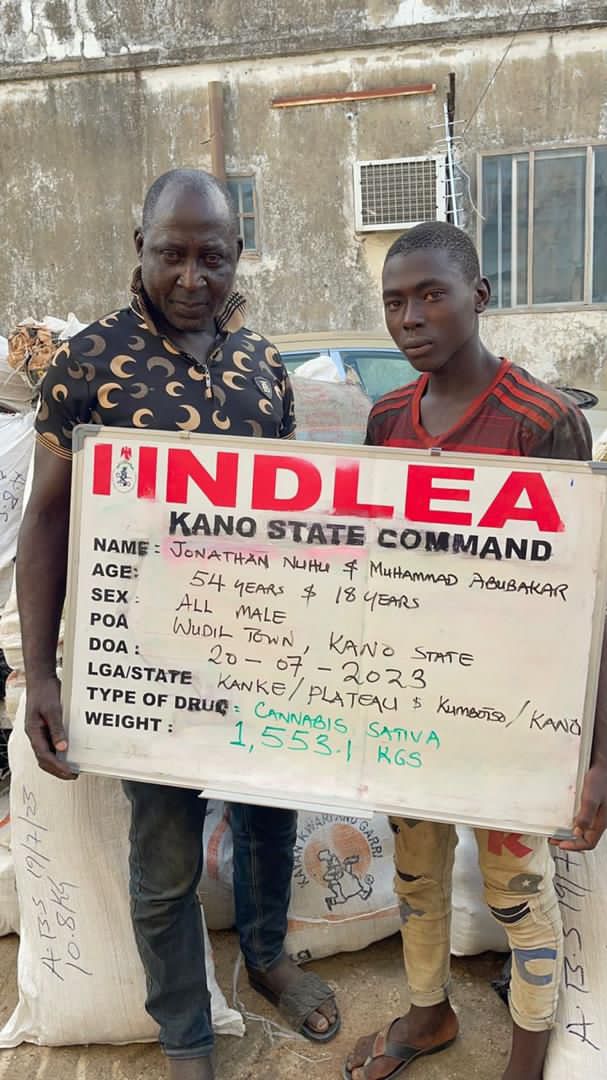 NDLEA
KANO STATE COMMAND
NAME: JONATHAN NUHU & MUHAMMAD ABUBAKAR
AGE: 54 YEARS & 18 YEARS
SEX: ALL MALE
POA WUDIL TOWN, KANO STATE
DOA: 20-07-2023
LGA/STATE KANKE/PLATEAU & KUMBOTSO/KANO
TYPE OF DRUG: CANNABIS SATIVA
WEIGHT: 1,553.1 KGS
A.B.S 19/7/23
10.8KG
KWARIAND GARRI
A.B.S 19/7